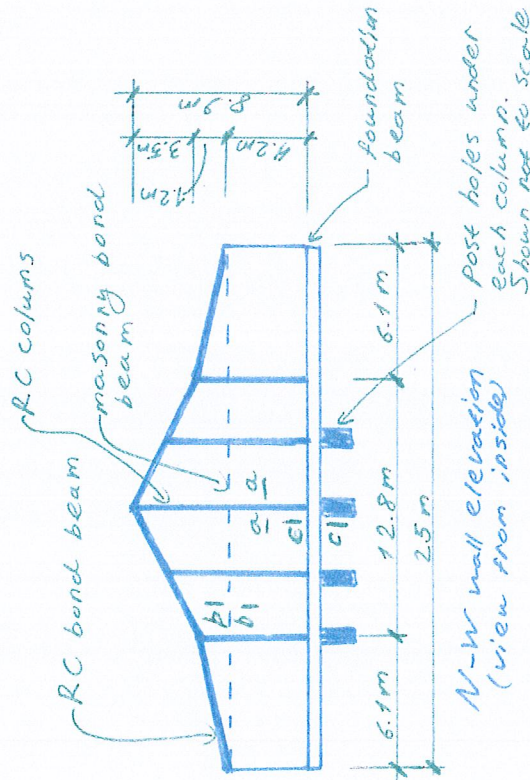 RC bond beam
RC colums
masonry bond
beam
1.2m
3.5m
4.2m
8.9m
a
a
b
b
c
c
foundation
beam
6.1m
12.8m
6.1m
25m
post holes under
each column.
Shown not to scale
N-W wall elevation
(view from inside)